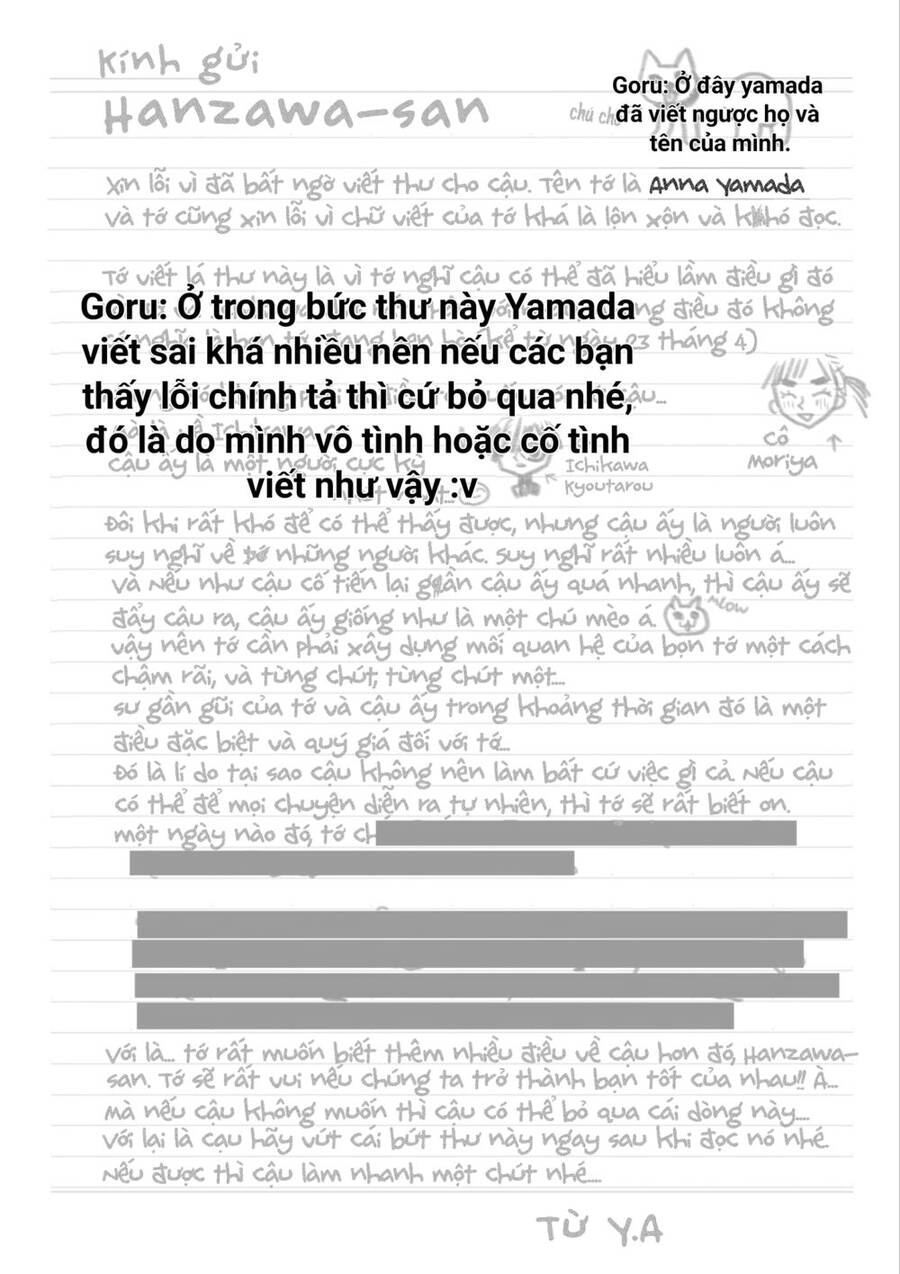 Kính gửi
Hanzawa-san
chú chó
Goru: Ở đây yamada
đã viết ngược họ và
tên của mình.
Xin lỗi vì đã bất ngờ viết thư cho cậu. Tên tớ là Anna Yamada
và tớ cũng xin lỗi vì chữ viết của tớ khá là lộn xộn và khó đọc.
Tớ viết lá thư này là vì tớ nghĩ cậu có thể đã hiểu lầm điều gì đó
Goru: Ở trong bức thư này Yamada
viết sai khá nhiều nên nếu các bạn
thấy lỗi chính tả thì cứ bỏ qua nhé,
đó là do mình vô tình hoặc cố tình
viết như vậy :v
điều đó không
23 tháng 4)
cô
Moriya
cậu ấy là một người cực kỳ
Ichikawa
Kyoutarou
Đôi khi rất khó để có thể thấy được, nhưng cậu ấy là người luôn
suy nghĩ về những người khác. Suy nghĩ rất nhiều luôn á...
và Nếu như cậu cố tiến lại gần cậu ấy quá nhanh, thì cậu ấy sẽ
đẩy câu ra, cậu ấy giống như là một chú mèo á.
Meow
vậy nên tớ cần phải xây dựng mối quan hệ của bọn tớ một cách
chậm rãi, và từng chút, từng chút một...
sư gần gũi của tớ và cậu ấy trong khoảng thời gian đó là một
điều đặc biệt và quý giá đối với tớ...
Đó là lí do tại sao cậu không nên làm bất cứ việc gì cả. Nếu cậu
có thể để mọi chuyện diễn ra tự nhiên, thì tớ sẽ rất biết ơn.
một ngày nào đó, tớ
Với là... tớ rất muốn biết thêm nhiều điều về cậu hơn đó, Hanzawa-
san. Tớ sẽ rất vui nếu chúng ta trở thành bạn tốt của nhau!! À...
mà nếu cậu không muốn thì cậu có thể bỏ qua cái dòng này....
Với lại là cạu hãy vứt cái bút thư này ngay sau khi đọc nó nhé.
Nếu được thì cậu làm nhanh một chút nhé....
Từ Y.A